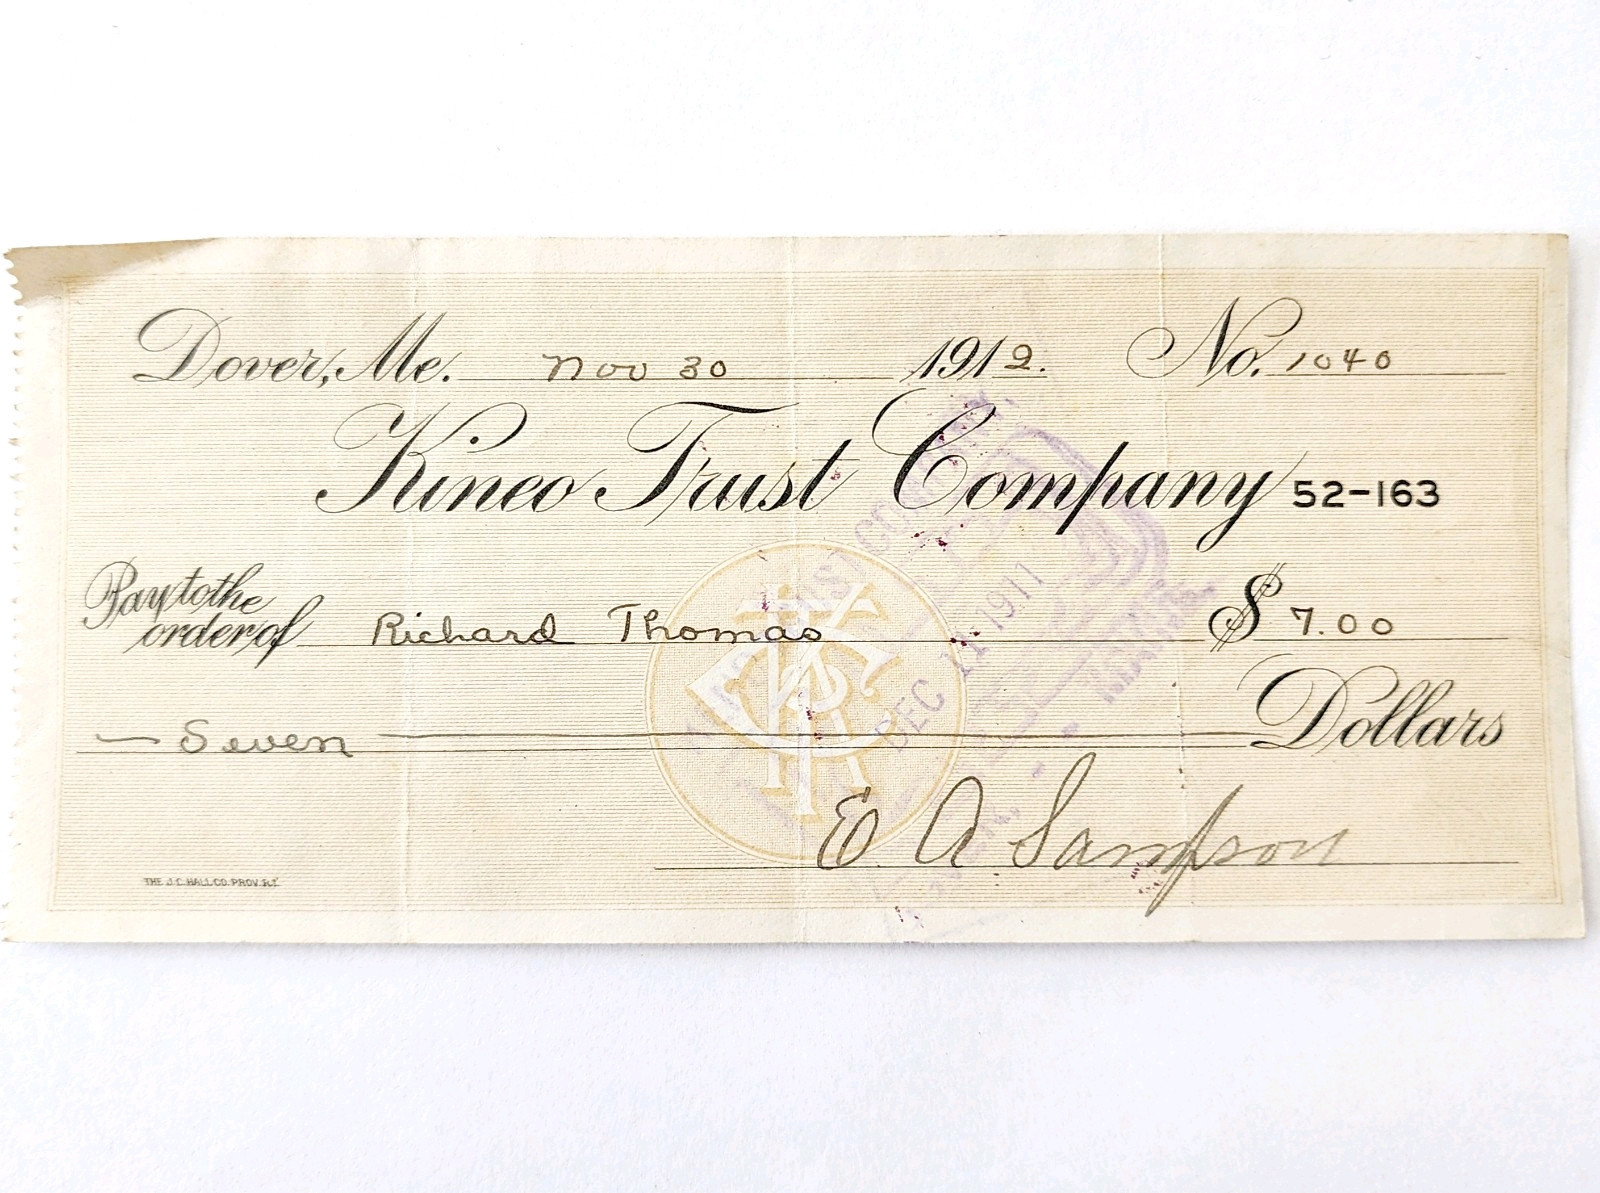 Dover, Me. Nov 30 1912. No. 1040
Kineo Trust Company 52-163
Pay to the
order of Richard Thomas $ 7.00
Seven Dollars
E A Sampson
THE J.C. HALL CO. PROV. R.I.
DEC 11 1911